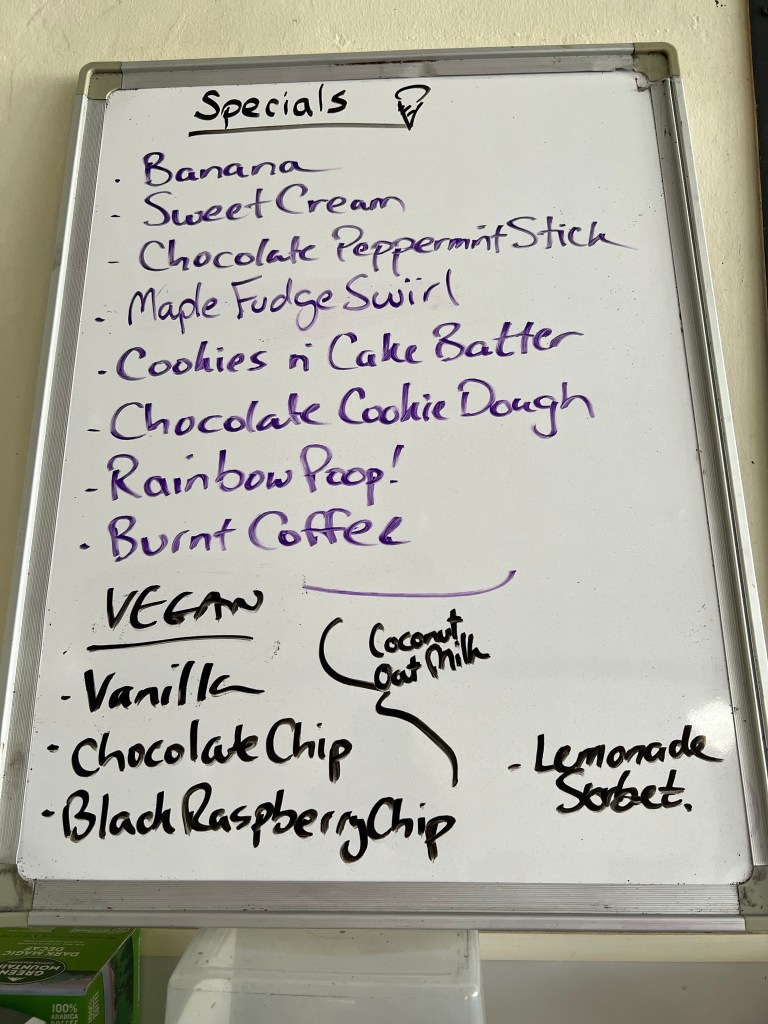 Specials
· Banana
- Sweet Cream
- Chocolate Peppermint Stick
· Maple Fudge Swirl
· Cookies n' Cake Batter
- Chocolate Cookie Dough
- Rainbow Poop!
· Burnt Coffee
VEGAN
Coconut
Oat Milk
- Vanilla
· Chocolate Chip
· Black Raspberry Chip
- Lemonade
Sorbet.
GREEN
MOUNTAIN
DARK MAGIC
DECAF
100%
ARABICA
COFFEE